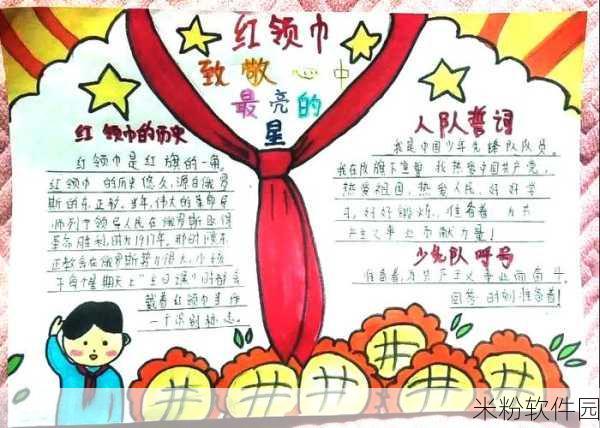 红领巾
致敬心中
最亮的
星
红领巾的历史
红领巾是红旗的一角。
红领巾的历史悠久,源自俄罗
斯的东正教。当年,伟大的革命导
师列宁领导人民在俄罗斯取得
革命胜利,因为1917年,那时候东
正教会在俄罗斯势力很大,小孩
子每个星期天上“主日课”时都会
戴着红领巾当作
一个识别标志。
入队誓词
我是中国少年先锋队队员。
我在队旗下宣誓 我热爱中国共产党,
热爱祖国,热爱人民,好好学
习,好好锻炼,准备着 为共
产主义事业贡献力量!
少先队呼号
准备着,为共产主义事业而奋斗
回答:时刻准备着!
米粉软件园